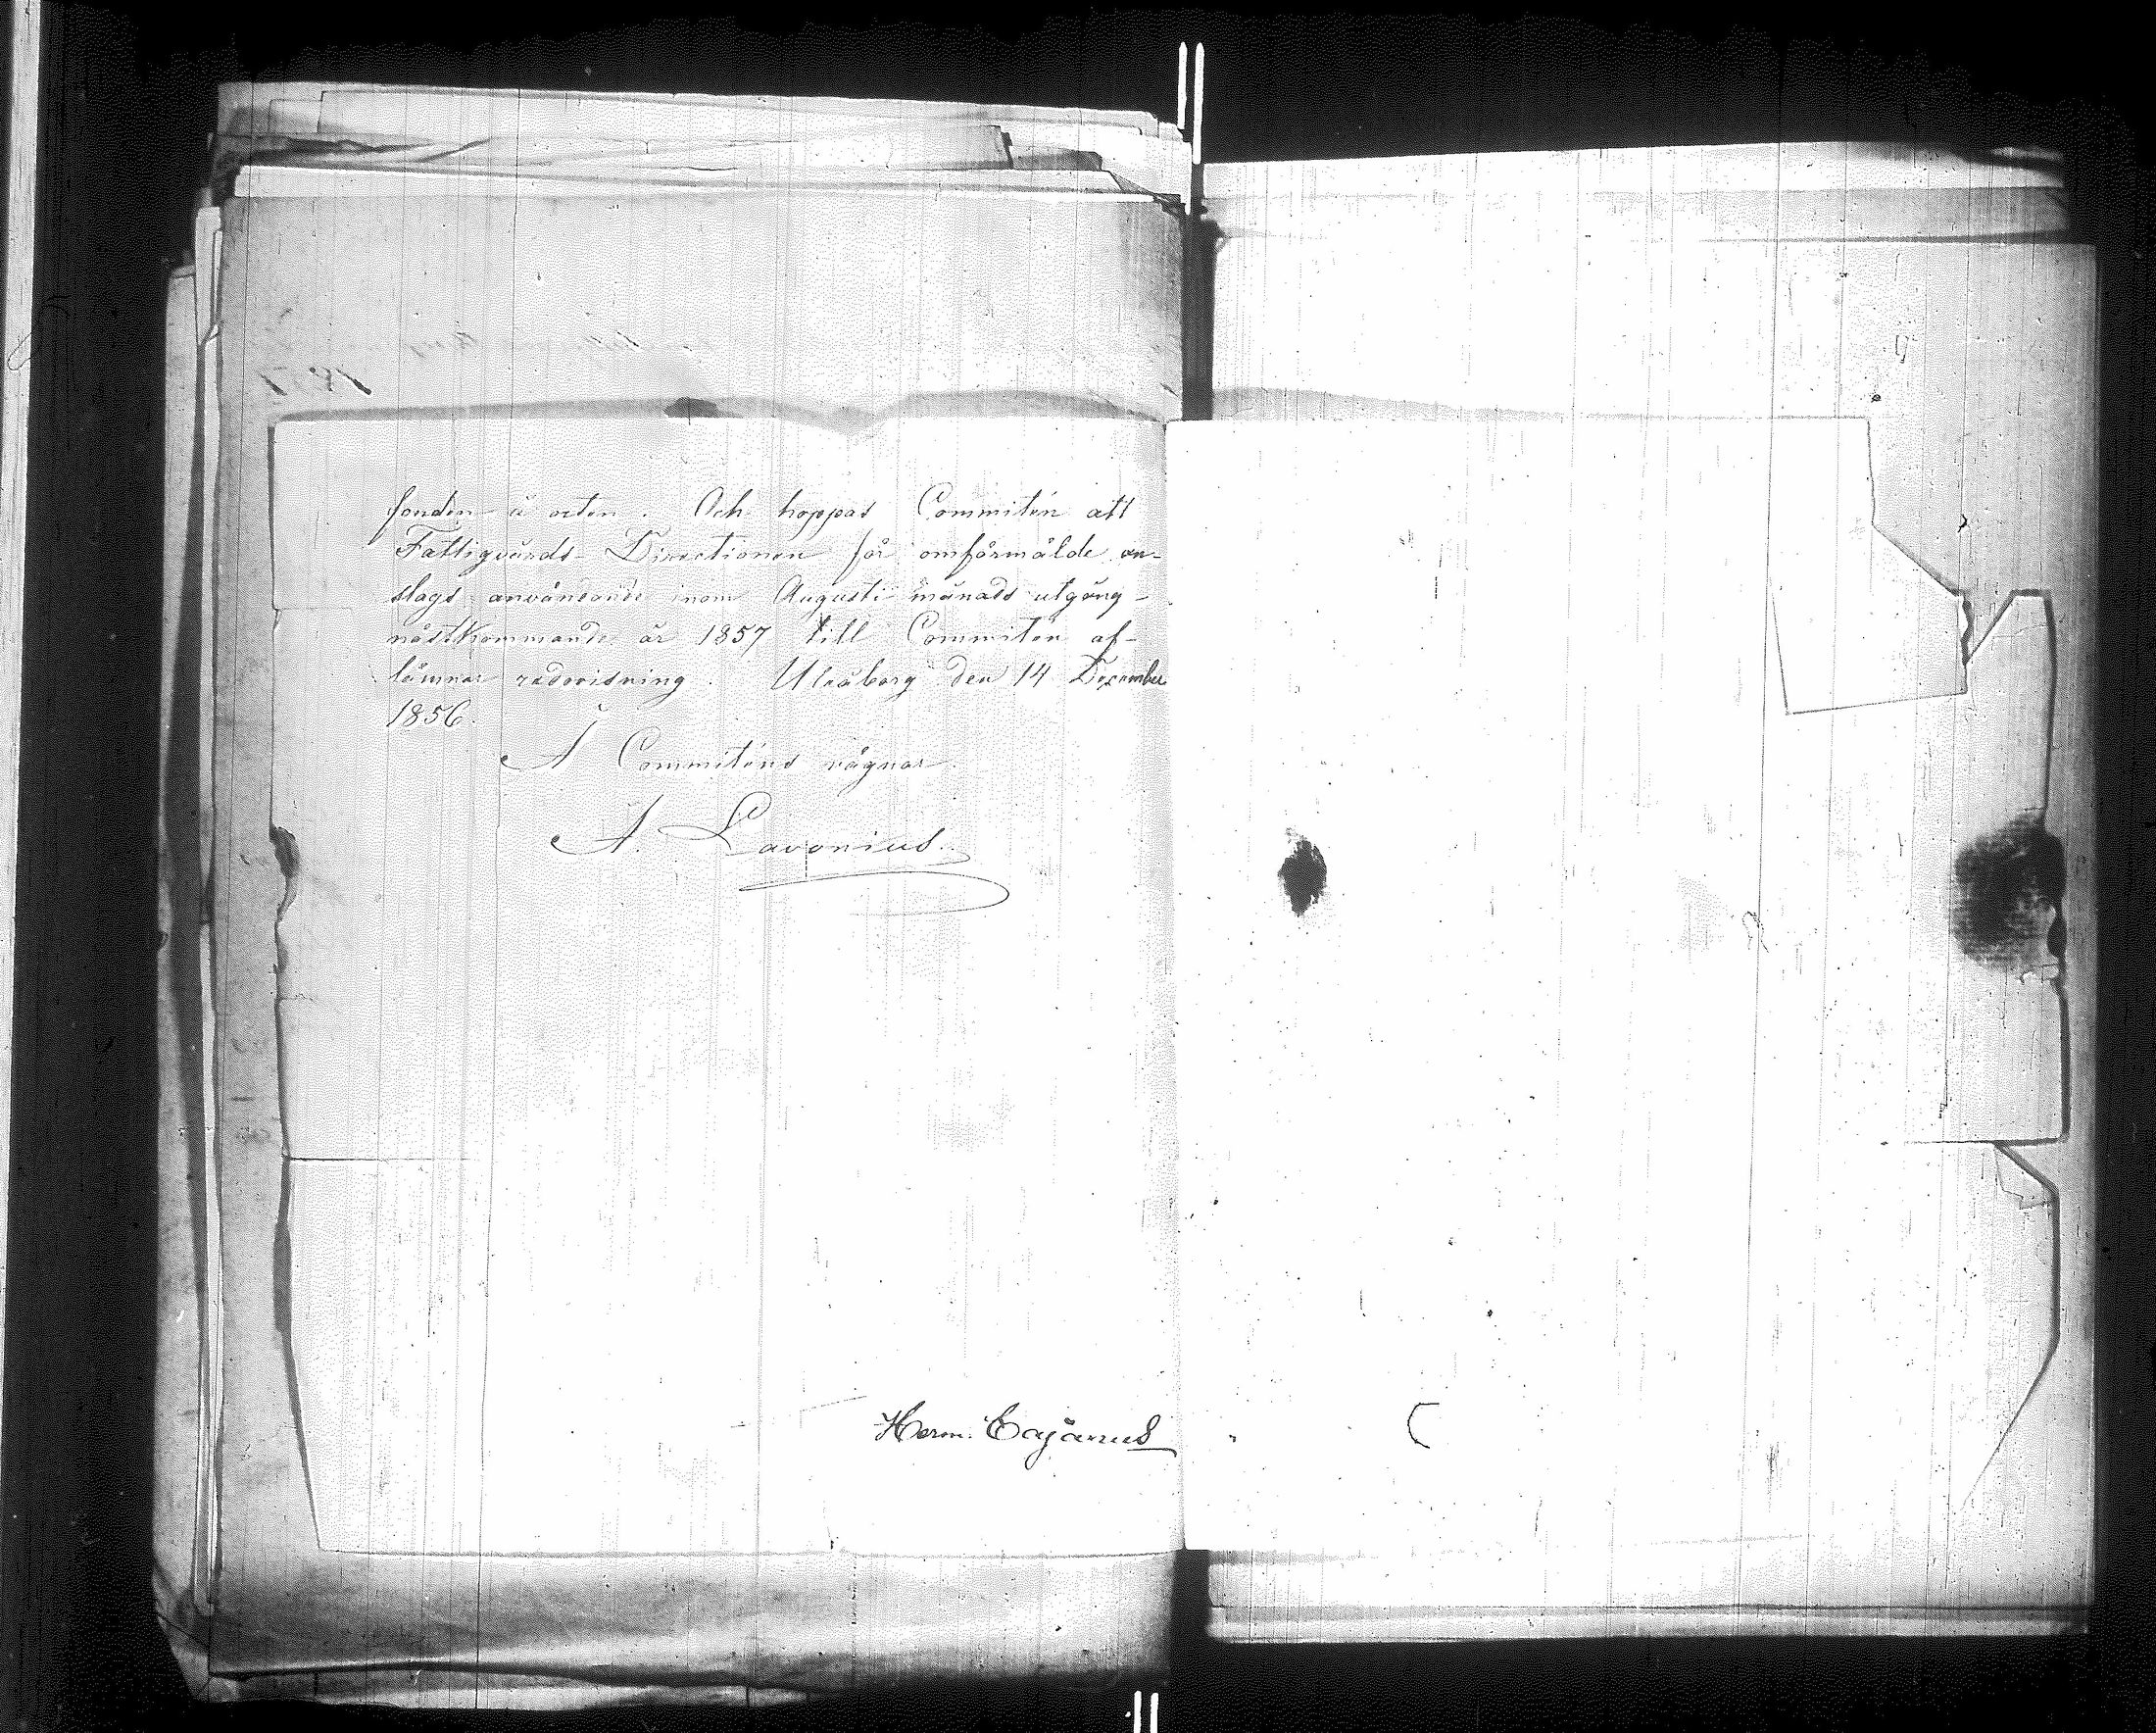 fonden å orten. Och hoppas Commitén att
Fattigvårds-Directionen för omförmälde an-
slags användande inom Augusti månads utgång
nästkommande år 1857 till Commitén af-
lämnar redovisning. Uleåborg den 14 December
1856.
Å Commiténs vägnar.
A. Lavonius.
Herm. Cajanus